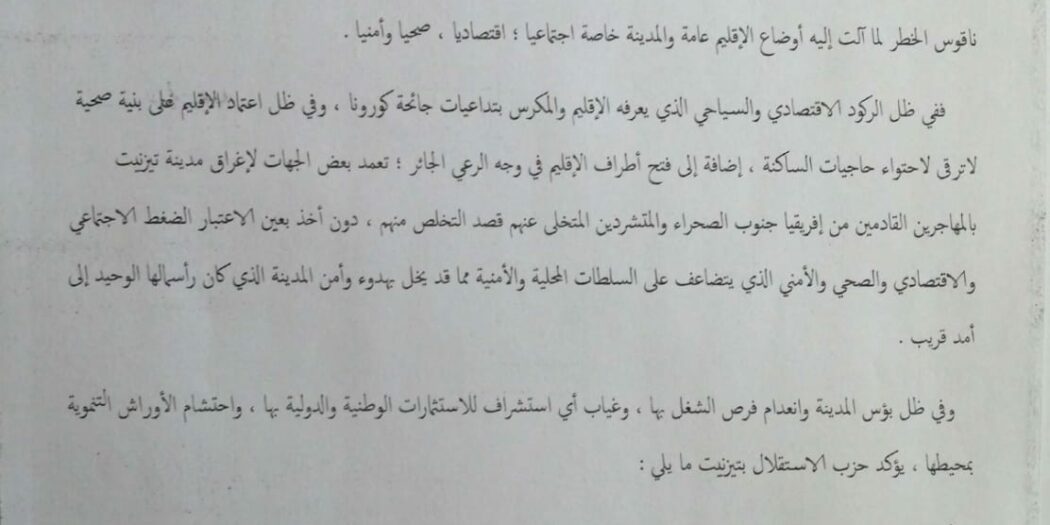 ناقوس الخطر لما آلت إليه أوضاع الإقليم عامة والمدينة خاصة اجتماعيا ؛ اقتصاديا ، صحيا وأمنيا .
ففي ظل الركود الاقتصادي والسياحي الذي يعرفه الإقليم والمكرس بتداعيات جائحة كورونا ، وفي ظل اعتماد الإقليم على بنية صحية
لاترقى لاحتواء حاجيات الساكنة ، إضافة إلى فتح أطراف الإقليم في وجه الرعي الجائر ؛ تعمد بعض الجهات لإغراق مدينة تيزنيت
بالمهاجرين القادمين من إفريقيا جنوب الصحراء والمتشردين المتخلى عنهم قصد التخلص منهم ، دون أخذ بعين الاعتبار الضغط الاجتماعي
والاقتصادي والصحي والأمني الذي يتضاعف على السلطات المحلية والأمنية مما قد يخل بهدوء وأمن المدينة الذي كان رأسمالها الوحيد إلى
أمد قريب .
وفي ظل بؤس المدينة وانعدام فرص الشغل بها ، وغياب أي استشراف للاستثمارات الوطنية والدولية بها ، واحتشام الأوراش التنموية
بمحيطها ، يؤكد حزب الاستقلال بتيزنيت ما يلي :